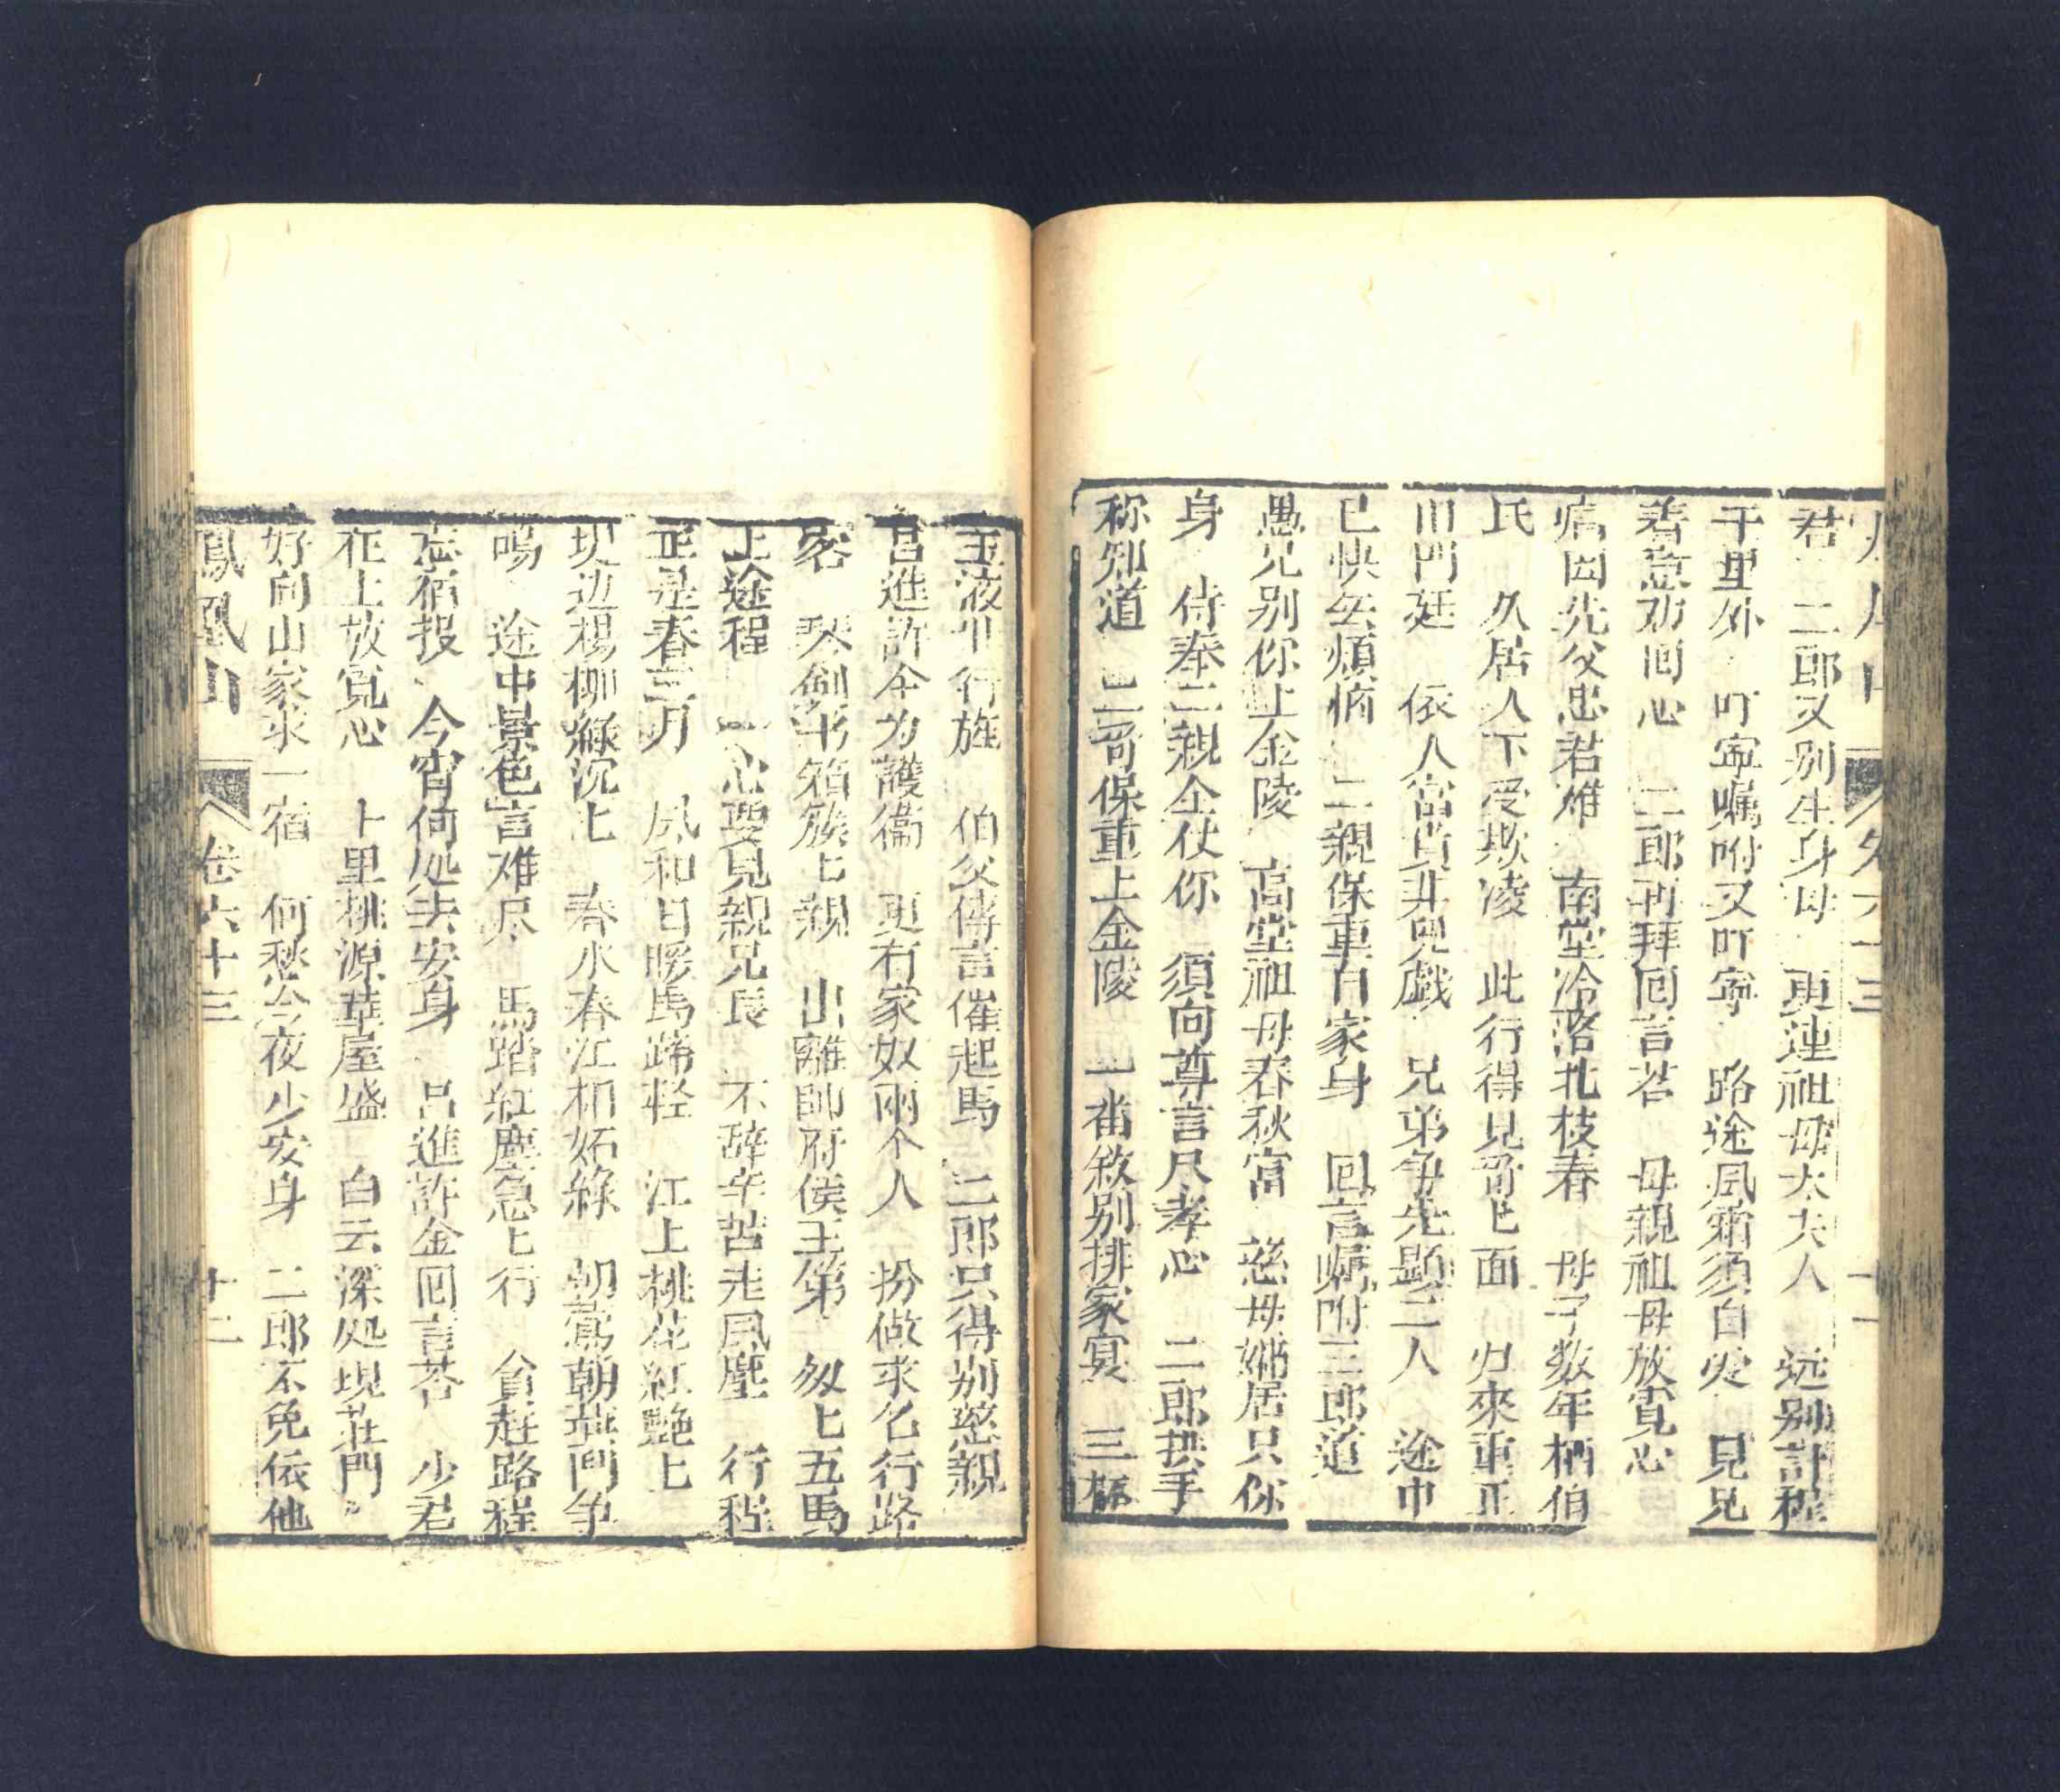 鳳凰山 卷六十三 十二
君 二郎又别生身母 更連祖母太夫人 远别計程
千里外 叮寧嘱咐又叮寧 路途風霜須自 兄兄
着意劝回心 二郎再拜回言答 母親祖母放寬心
痛因先父忠君难 南堂冷落北枝春 母子数年栖伯
氏 久居人下受欺凌 此行得見哥匕面 归來重正
旧門廷 依人富貴非兒戯 兄弟争先顕二人 途中
已快去煩惱 二親保重自家身 回言嘱咐三郎道
愚兄别你上金陵 高堂祖母春秋富 慈母孀居只你
身 侍奉二親全仗你 須向尊言尽孝心 二郎拱手
称知道 二哥保重上金陵 一番敘别排家宴 三杯
玉液 行旌 伯父傳言催起馬 二郎只得别慈親
呂進許全为護衞 更有家奴兩个人 扮做求名行路
客 琴劍书箱簇匕親 出離帥府侯王第 匆匕五馬
上途程 一心要見親兄長 不辞辛苦走風塵 行程
正是春三月 風和日暖馬蹄轻 江上桃花紅艶匕
堤边楊柳綠沉匕 春水春江相妬綠 朝鶯朝燕鬥争
鳴 途中景色言难尽 馬踏紅塵急匕行 貪赶路程
忘宿投 今宵何処去安身 呂進許全回言荅 少君
在上放寬心 十里桃源華屋盛 白云深処現荘門
好向山家求一宿 何愁今夜少安身 二郎不免依他
鳳凰山 卷六十三 十二